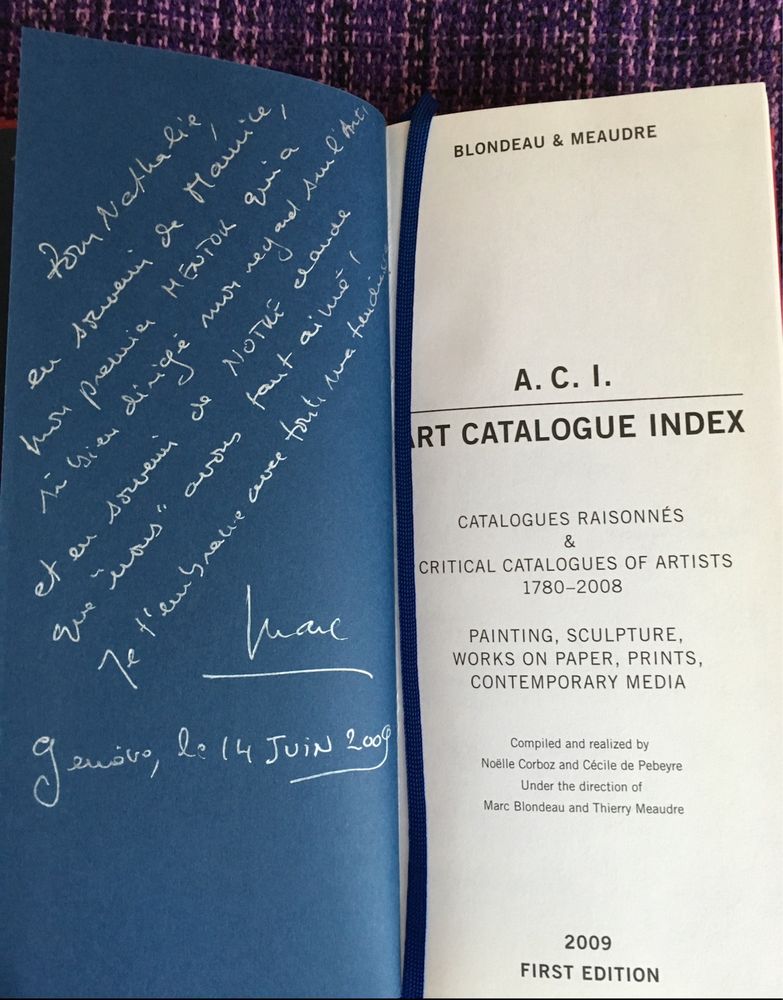 Pour Nathalie,
en souvenir de Maurice,
mon premier MENTOR qui a
si bien dirigé mon regard sur l'Art,
et en souvenir de NOTRE claude
que "nous" avons tant aimé!
Je t'embrasse avec toute ma tendresse
Marc
Genève, le 14 JUIN 2009
BLONDEAU & MEAUDRE
A. C. I.
ART CATALOGUE INDEX
CATALOGUES RAISONNÉS
&
CRITICAL CATALOGUES OF ARTISTS
1780–2008
PAINTING, SCULPTURE,
WORKS ON PAPER, PRINTS,
CONTEMPORARY MEDIA
Compiled and realized by
Noëlle Corboz and Cécile de Pebeyre
Under the direction of
Marc Blondeau and Thierry Meaudre
2009
FIRST EDITION